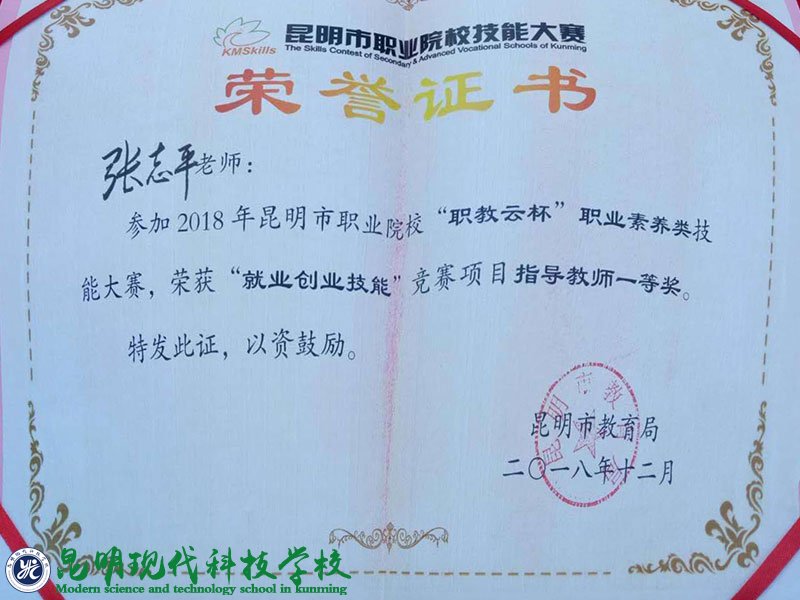 KMSkills
昆明市职业院校技能大赛
The Skills Contest of Secondary & Advanced Vocational Schools of Kunming
荣誉证书
张志平老师：
参加2018年昆明市职业院校“职教云杯”职业素养类技
能大赛，荣获“就业创业技能”竞赛项目指导教师一等奖。
特发此证，以资鼓励。
昆明市教育局
昆明市教育局
二〇一八年十二月
昆明现代科技学校
Modern science and technology school in kunming